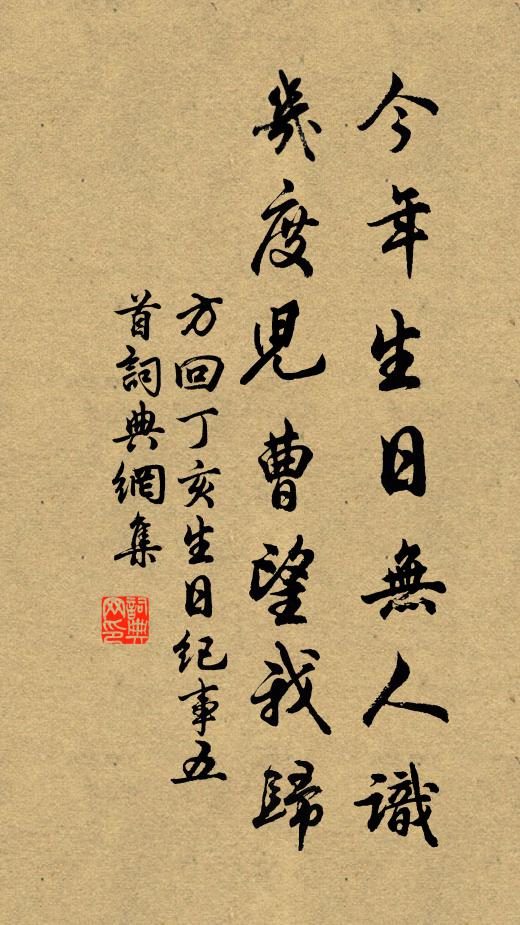 今年生日無人識
幾度兒曹望我歸
方回丁亥生日纪事五
首詞典網集
詞典网印